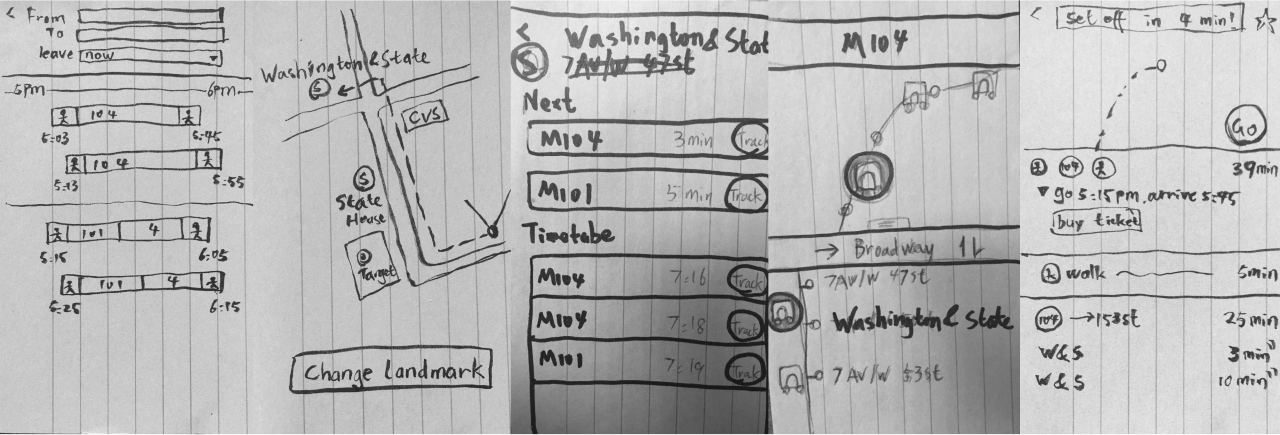 < From
To
leave now
5pm 6pm
104
5:03 5:45
104
5:13 5:55
101 4
5:15 6:05
101 4
5:25 6:15
Washington & State
S
CVS
S
State
House
Target
Change landmark
< Washington & Stat
S 7AV/W 47st
Next
M104 3 min Track
M101 5 min Track
Timetabe
M104 7:16 Track
M104 7:18 Track
M101 7:19 Track
M104
→ Broadway
7AV/W 47st
Washington & State
7 AV/W 53st
< Set off in 4 min!
Go
104 39min
go 5:15pm, arrive 5:45
buy ticket
walk 5min
104 → 153st 25 min
W&S 3 min
W&S 10 min